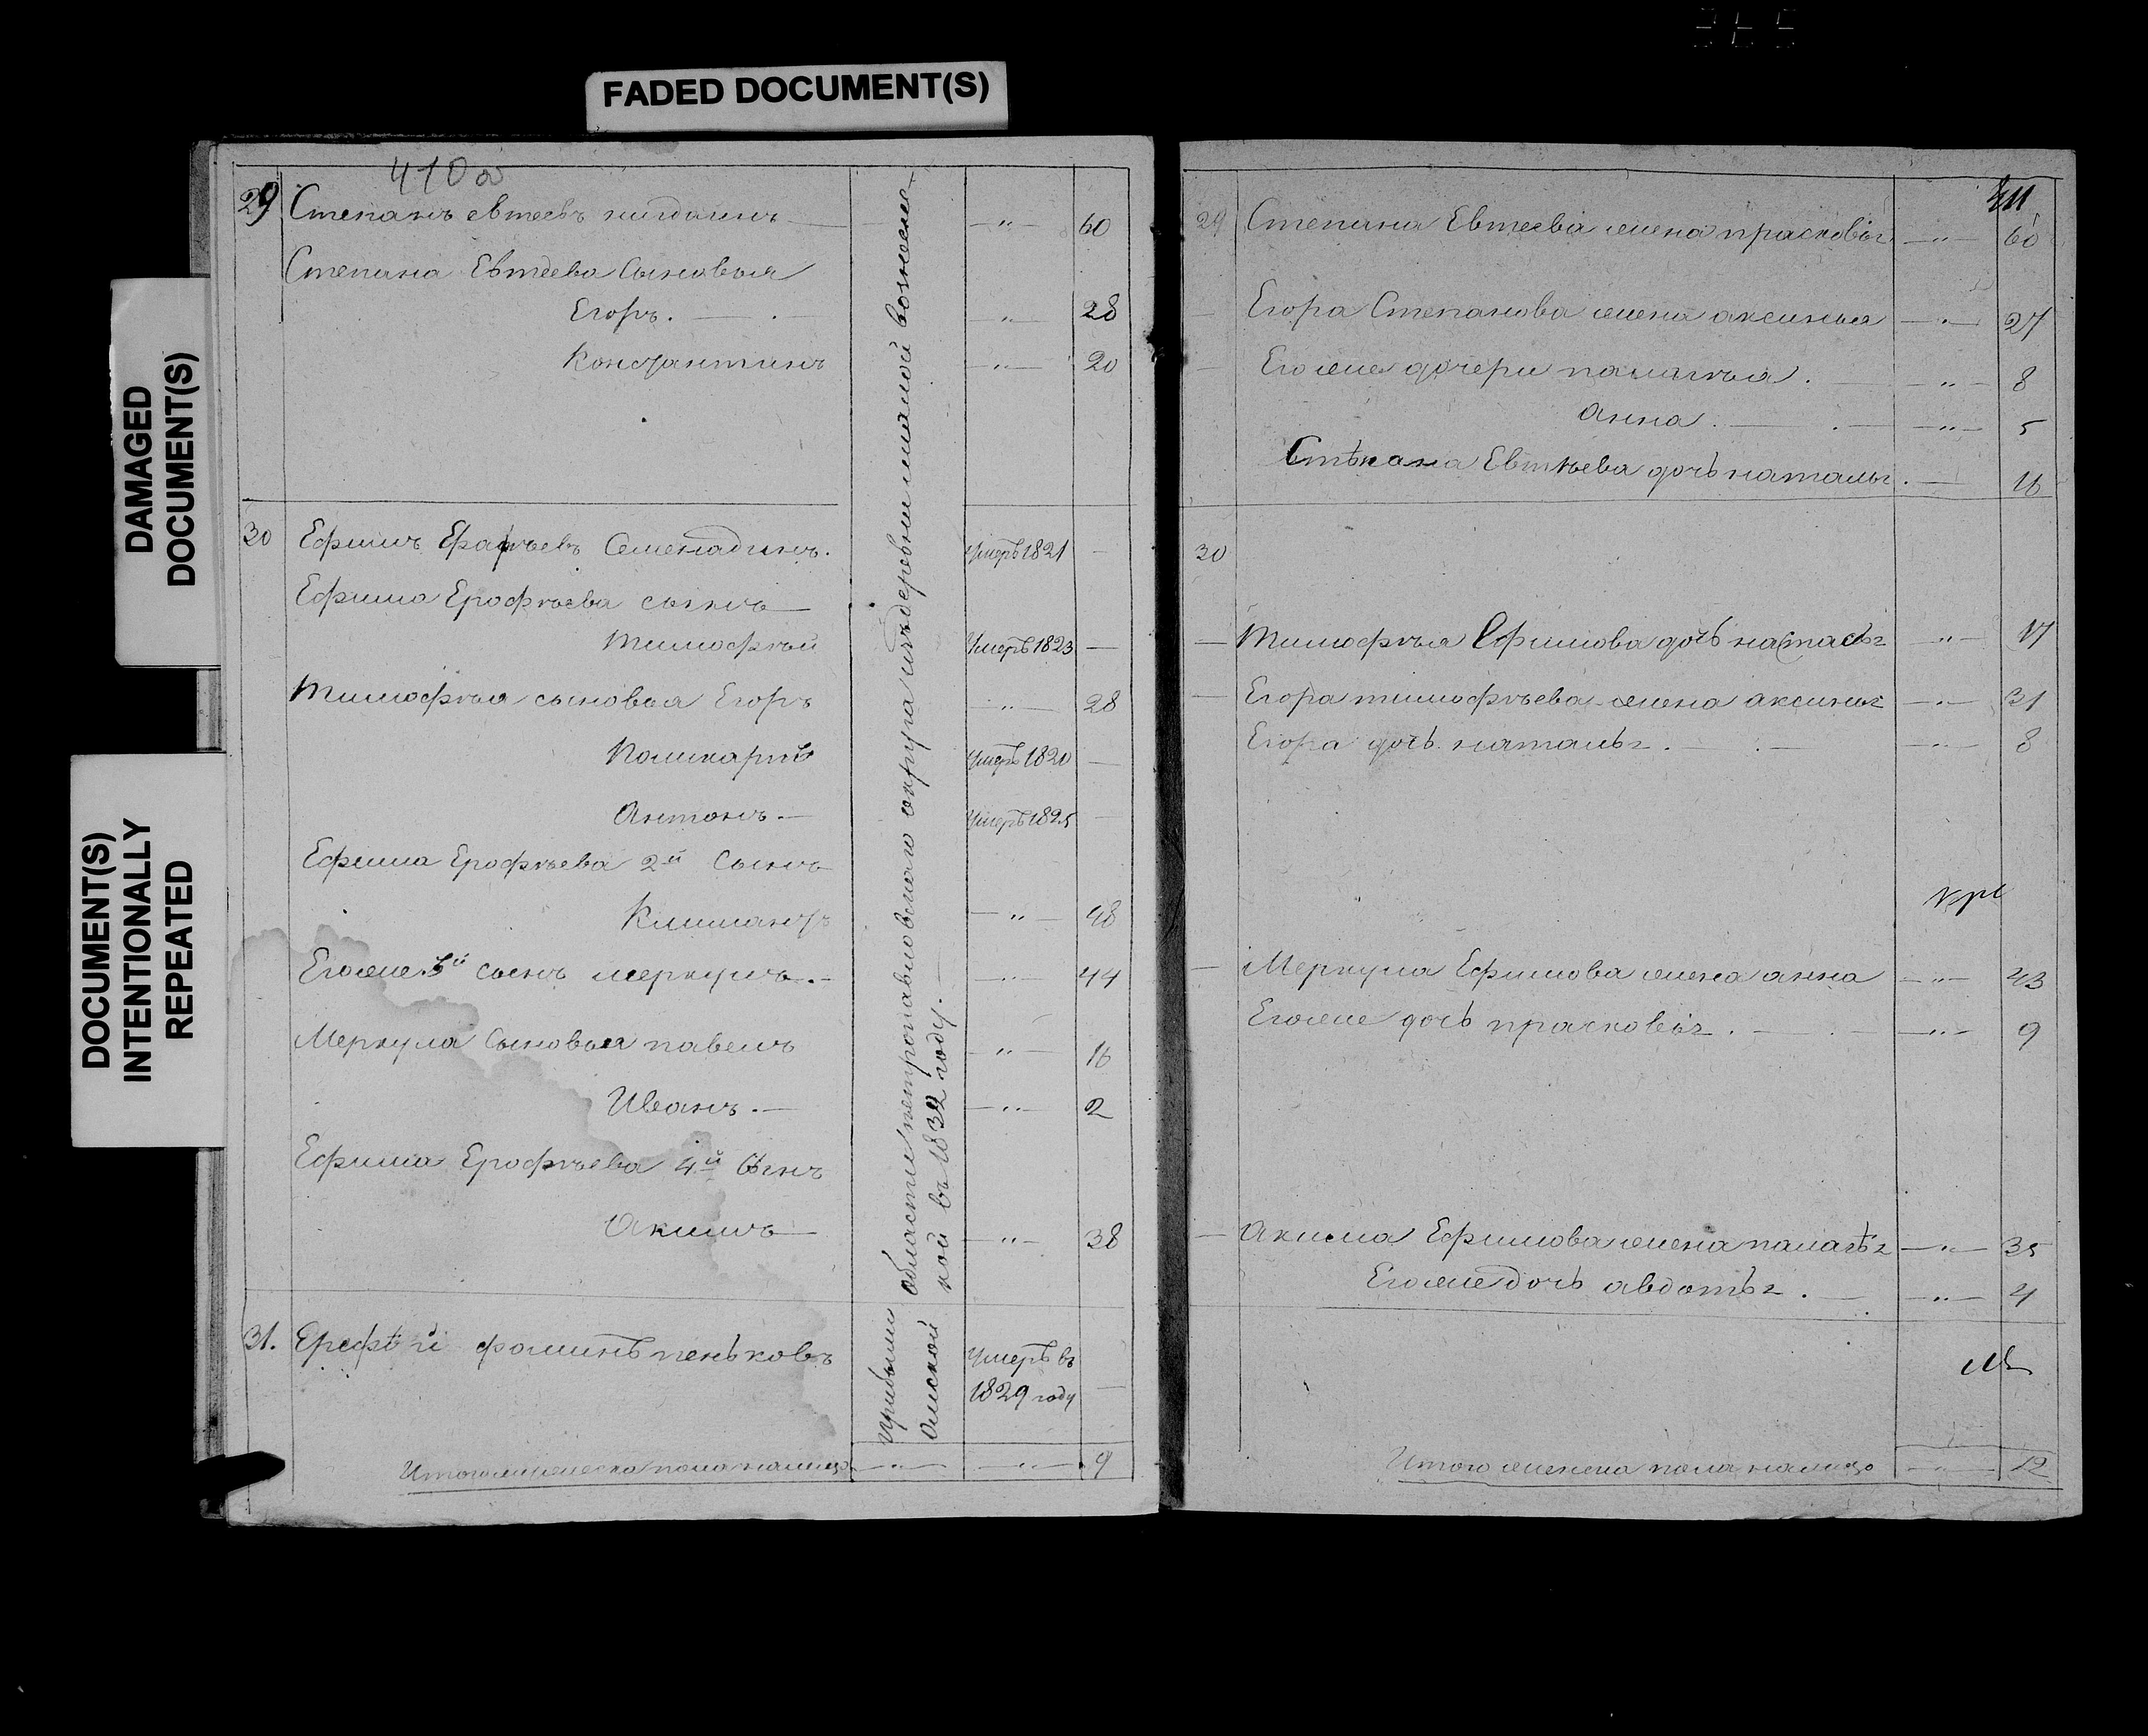 FADED DOCUMENT(S)
DAMAGED
DOCUMENT(S)
DOCUMENT(S)
INTENTIONALLY
REPEATED
410 об
29 Степанъ евтеевъ — " — 60
Степана Евтеева Сыновья
Егоръ. — " 28
Константинъ — " — 20
30 Ефимъ Ерафѣевъ Семенадинъ. Умеръ 1821 —
Ефима Ерофѣева сынъ
Тимофѣй Умеръ 1823 —
Тимофѣя сыновья Егоръ — " — 28
Полікарпъ Умеръ 1820 —
Антонъ. — Умеръ 1825 —
Ефима Ерофѣева 2й Сынъ
— " — 48
Егоже 3й сынъ меркулъ. — — " — 44
Меркула Сыновья павелъ — " — 16
Иванъ. — — " — 2
Ефима Ерофѣева 4й Сынъ
Акимъ — — " — 38
31. Ерефѣй фоминъ пеньковъ Умеръ въ
1829 году —
Итого мужеска пола налицо — " — — " — 9
прибыли
Омской области петропавловского округа изъ деревни
кой въ 1832 году. —
411
29 Степана Евтеева жена прасковья — " — 60
— Егора Степанова жена аксинья — " — 27
— Егоже дочери палагѣя. — — " — 8
Анна. — . — — " — 5
Стѣпана Евтѣева дочь наталья. — 16
30
— Тимофѣя Ефимова дочь настасья — " — 17
— Егора тимофѣева жена аксинья — " — 31
Егора дочь наталья. — . — — " — 8
— Меркула Ефимова жена анна — " — 43
Егоже дочь прасковья. — . — — " — 9
— Акима Ефимова жена палагѣя — " — 35
Егоже дочь авдотья. — — " — 4
Итого женска пола налицо — " — 12